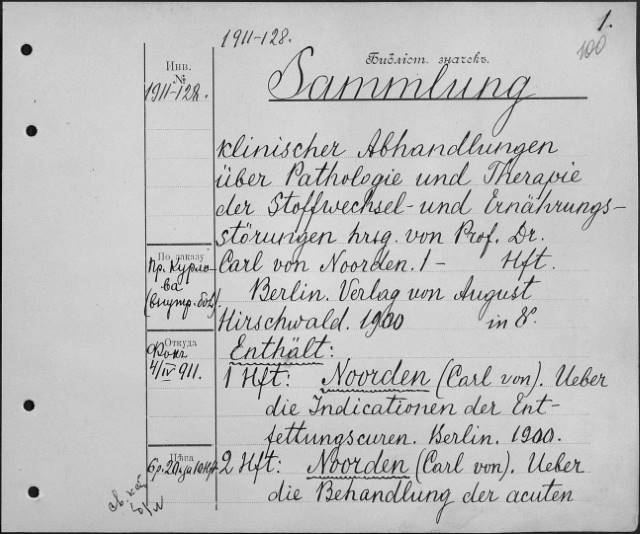 1.
1911-128.
100
Инв.
№
1911-128.
Библіот. значекъ.
Sammlung
klinischer Abhandlungen
über Pathologie und Therapie
der Stoffwechsel- und Ernährungs-
störungen hrsg. von Prof. Dr.
Carl von Noorden. 1- Hft.
Berlin. Verlag von August
Hirschwald. 1900 in 8°.
По заказу
Пр. Курло-
ва
(внутр. бол).
Откуда
Фокъ
4/IV 911.
Цѣна
6 р. 20
Enthält:
1 Hft: Noorden (Carl von). Ueber
die Indicationen der Ent-
fettungscuren. Berlin. 1900.
2 Hft: Noorden (Carl von). Ueber
die Behandlung der acuten